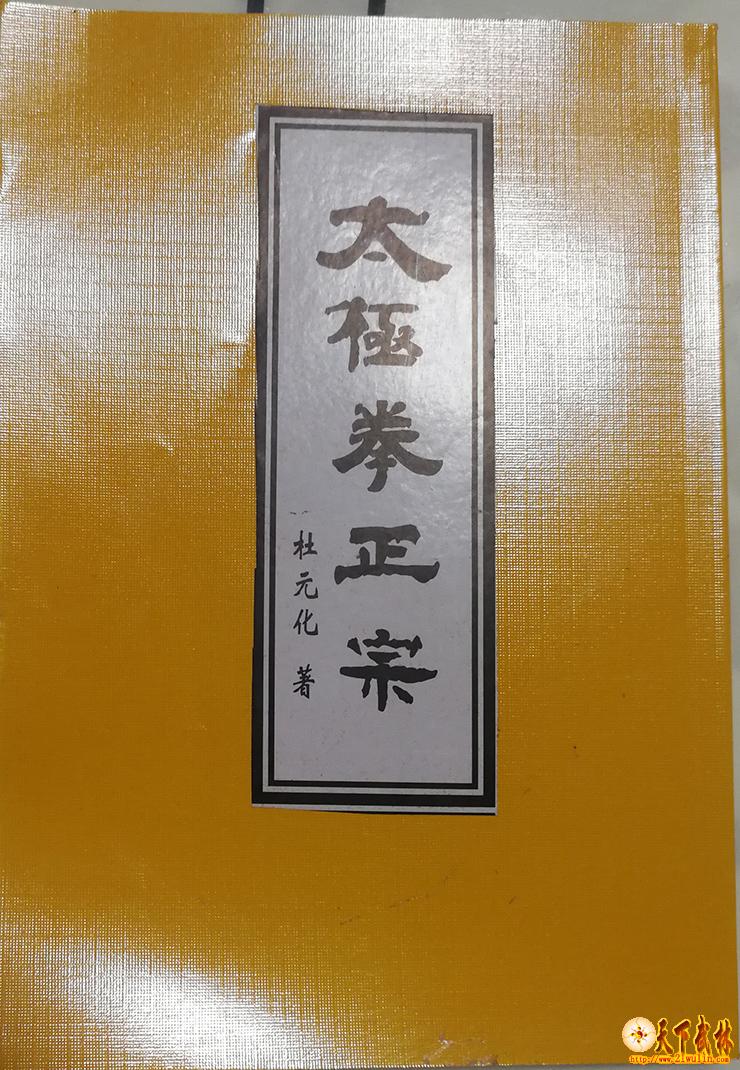 太極拳正宗
杜元化 著
天下武林
http://www.21wulin.com